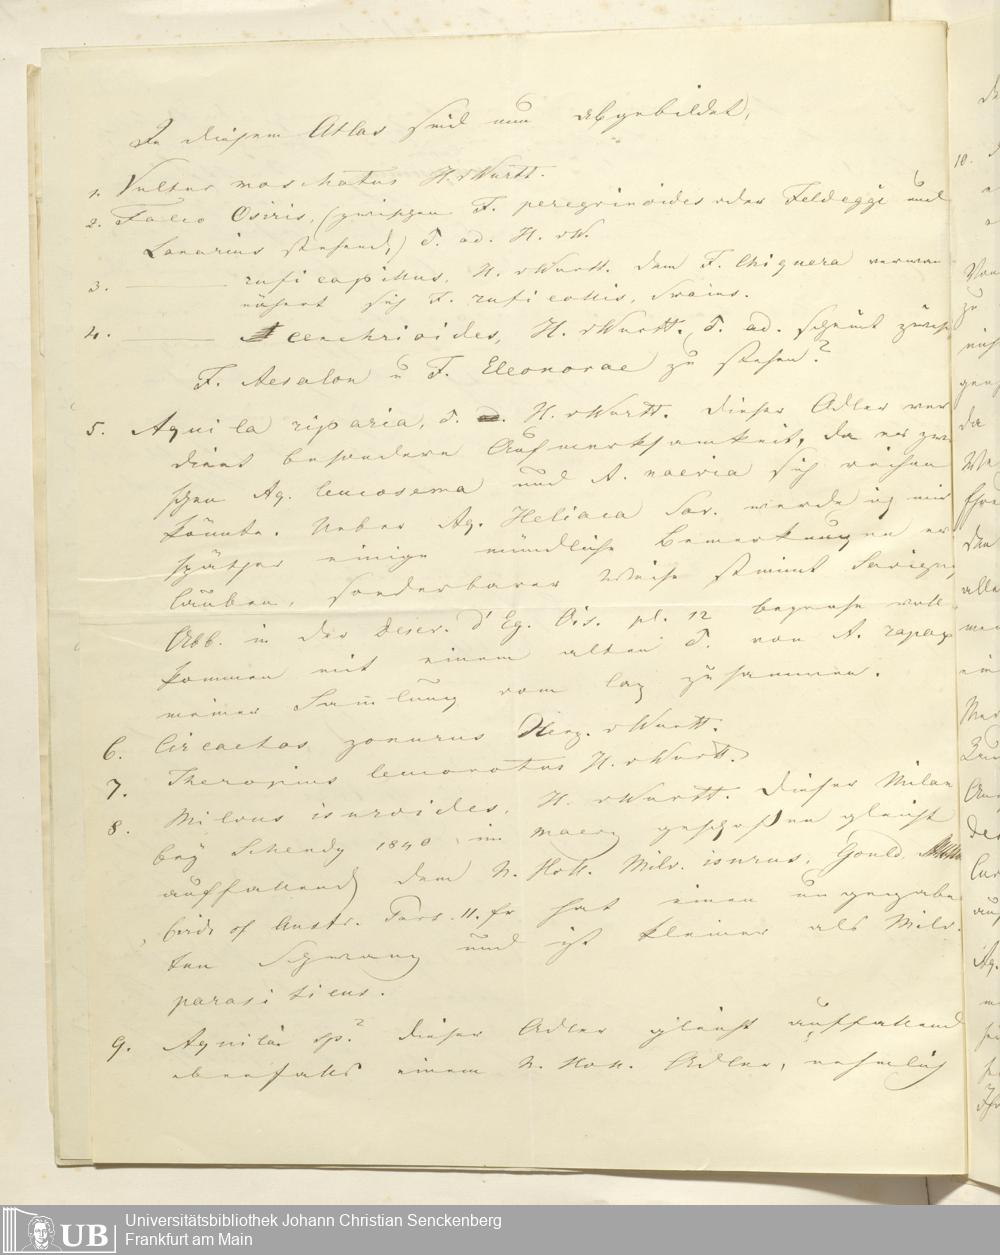 In diesem Atlas sind nun abgebildet,
1. Vultur moschatus H. v Württ.
2. Falco Osiris, (zwischen F. peregrinoides oder Feldeggi und
Lanarius stehend,) ad. H. v W.
3. —— ruficapillus, H. v Württ. dem F. Chiquera
nähert sich F. ruficollis, Swains.
4. —— cenchrioides, H. v Württ. ad. scheint zwisch
F. Aesalon u F. Eleonorae zu stehen?
5. Aquila riparia, H. v Württ. Dieser Adler ver
dient besondere Aufmerksamkeit, da er zwi
schen Aq. leucosema und A. naevia sich reihen
könnte. Ueber Aq. Heliaca Sav. werde ich mir
später einige mündliche Bemerkungen er
lauben, sonderbarer Weise stimmt Savigny
Abb. in der Descr. d'Eg. Ois. pl. 12 beynahe voll
kommen mit einem alten von A. rapax
meiner Sammlung vom Cap zusammen.
6. Circaetos zonurus Herz. v Württ.
7. Theropius leuconotus H. v Württ.
8. Milvus isuroides, H. v Württ. Dieser Milan
bey Schendy 1840 im geschossen gleicht
auffallend dem N. Holl. Milv. isurus, Gould
birds of Austr. Part. II. Er hat einen ungegabel
ten Schwanz und ist kleiner als Milv.
parasiticus.
9. Aquila sp? Dieser Adler gleicht auffallend
ebenfalls einem N. Holl. Adler, nehmlich
10.
UB Universitätsbibliothek Johann Christian Senckenberg
Frankfurt am Main